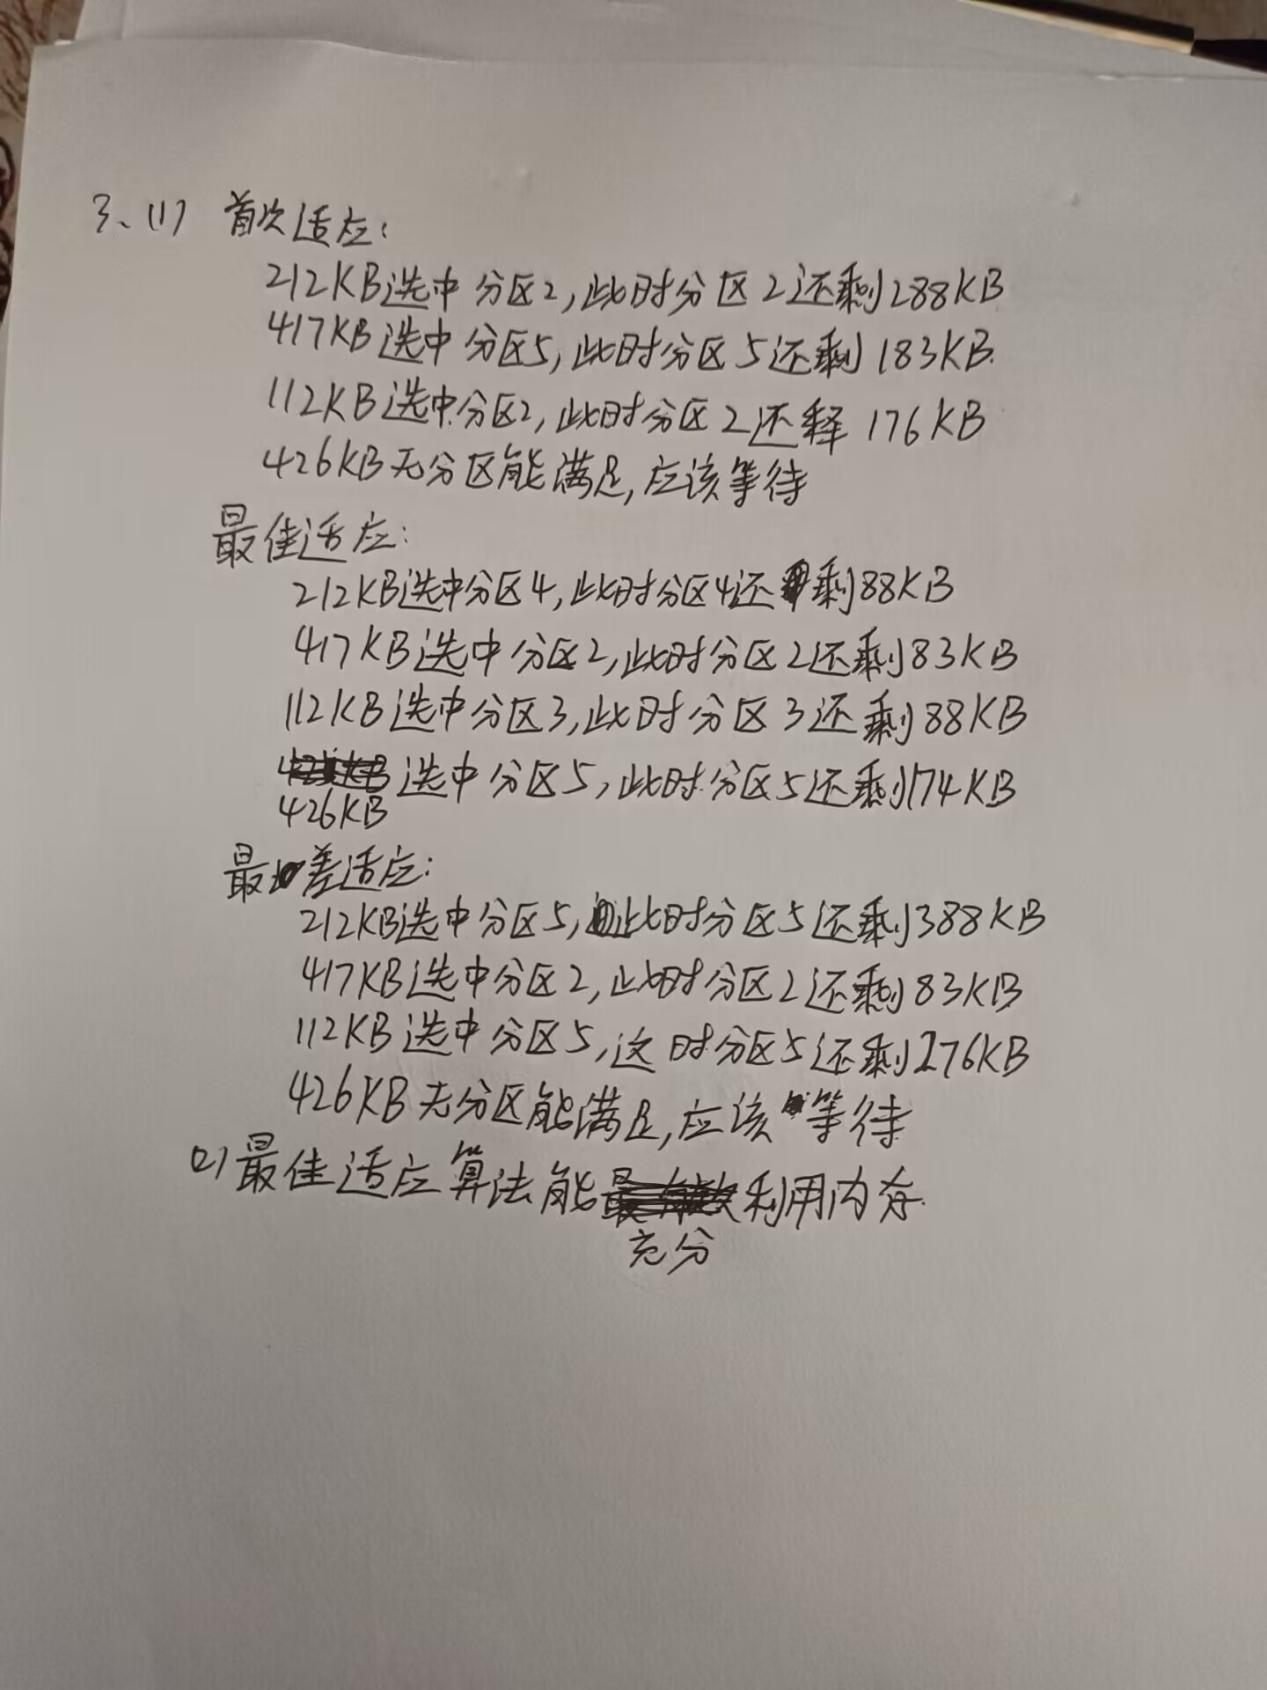 3、(1) 首次适应:
212KB选中分区2,此时分区2还剩288KB
417KB选中分区5,此时分区5还剩183KB.
112KB选中分区2,此时分区2还释176KB
426KB无分区能满足,应该等待
最佳适应:
212KB选中分区4,此时分区4还剩88KB
417KB选中分区2,此时分区2还剩83KB
112KB选中分区3,此时分区3还剩88KB
选中分区5,此时分区5还剩174KB
426KB
最差适应:
212KB选中分区5,此时分区5还剩388KB
417KB选中分区2,此时分区2还剩83KB
112KB选中分区5,这时分区5还剩276KB
426KB无分区能满足,应该等待
(2)最佳适应算法能利用内存.
充分